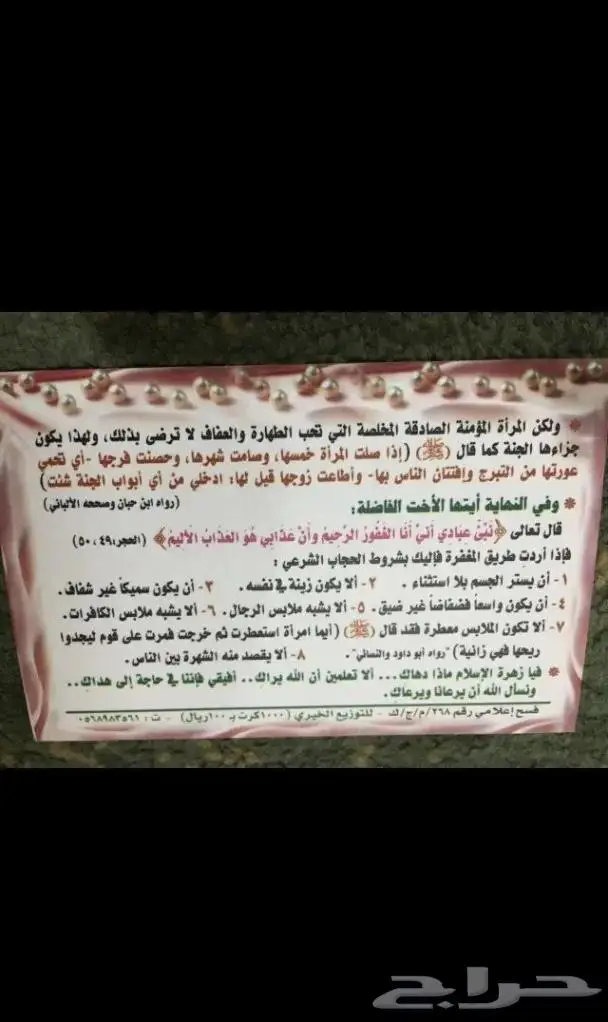 * ولكن المرأة المؤمنة الصادقة المخلصة التي تحب الطهارة والعفاف لا ترضى بذلك، ولهذا يكون
جزاءها الجنة كما قال (ﷺ) (إذا صلت المرأة خمسها، وصامت شهرها، وحصنت فرجها -أي تحمي
عورتها من التبرج وإفتتان الناس بها- وأطاعت زوجها قيل لها: ادخلي من أي أبواب الجنة شئت)
(رواه ابن حبان وصححه الألباني)
* وفي النهاية أيتها الأخت الفاضلة:
قال تعالى ﴿نَبِّئْ عِبَادِي أَنِّي أَنَا الْغَفُورُ الرَّحِيمُ وَأَنَّ عَذَابِي هُوَ الْعَذَابُ الْأَلِيمُ﴾ (الحجر:٤٩، ٥٠)
فإذا أردت طريق المغفرة فإليك بشروط الحجاب الشرعي :
١- أن يستر الجسم بلا استثناء . ٢- ألا يكون زينة في نفسه . ٣- أن يكون سميكاً غير شفاف.
٤- أن يكون واسعاً فضفاضاً غير ضيق. ٥- ألا يشبه ملابس الرجال. ٦- ألا يشبه ملابس الكافرات.
٧- ألا تكون الملابس معطرة فقد قال (ﷺ) (أيما امرأة استعطرت ثم خرجت فمرت على قوم ليجدوا
ريحها فهي زانية) "رواه أبو داود والنسائي". ٨- ألا يقصد منه الشهرة بين الناس.
* فيا زهرة الإسلام ماذا دهاك... ألا تعلمين أن الله يراك.. أفيقي فإننا في حاجة إلى هداك..
ونسأل الله أن يرعانا ويرعاك.
فسح إعلامي رقم ٢٦٨/م/ج/ك - للتوزيع الخيري (١٠٠٠كرت بـ ١٠٠ريال) - ت: ٠٥٦٨٩٨٣٥٦١
حراج